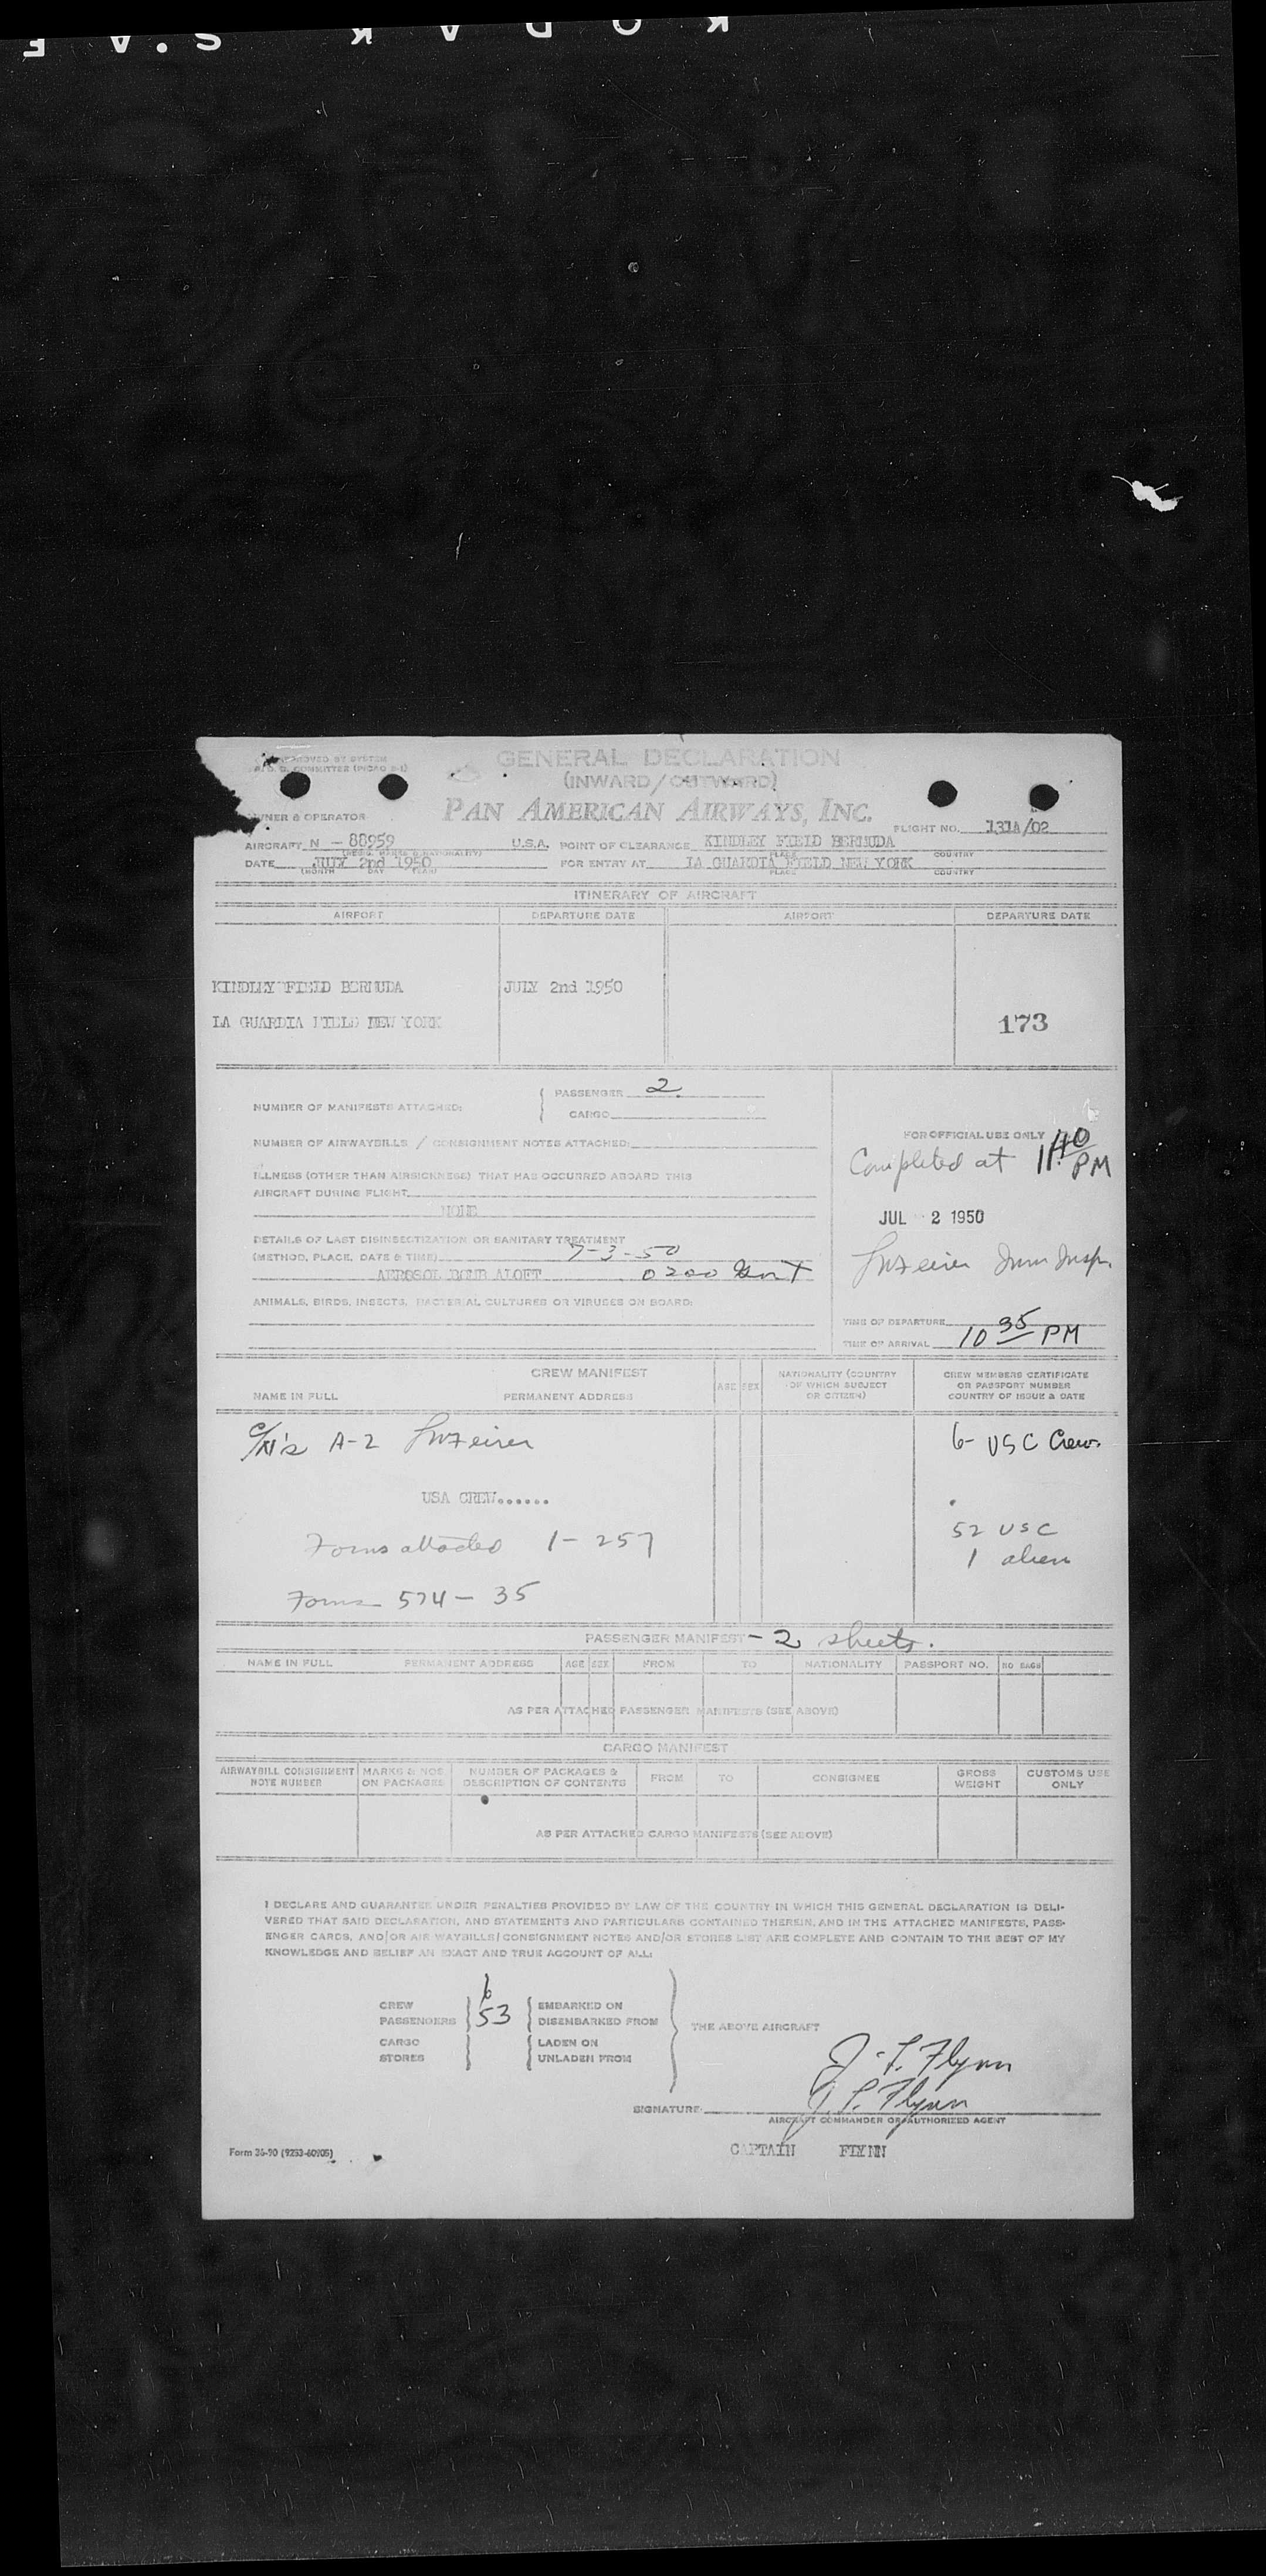 KODAK S.A F
APPROVED BY SYSTEM
COMMITTEE
GENERAL DECLARATION
(INWARD/OUTWARD)
PAN AMERICAN AIRWAYS, INC.
OWNER & OPERATOR
FLIGHT NO. 131A/02
AIRCRAFT N - 88959 U.S.A. POINT OF CLEARANCE KINDLEY FIELD BERMUDA
PLACE COUNTRY
DATE JULY 2nd 1950 FOR ENTRY AT LA GUARDIA FIELD NEW YORK
(MONTH DAY YEAR) PLACE COUNTRY
ITINERARY OF AIRCRAFT
AIRPORT DEPARTURE DATE AIRPORT DEPARTURE DATE
KINDLEY FIELD BERMUDA JULY 2nd 1950
LA GUARDIA FIELD NEW YORK 173
NUMBER OF MANIFESTS ATTACHED: PASSENGER 2
CARGO
NUMBER OF AIRWAYBILLS / CONSIGNMENT NOTES ATTACHED:
ILLNESS (OTHER THAN AIRSICKNESS) THAT HAS OCCURRED ABOARD THIS
AIRCRAFT DURING FLIGHT
NONE
DETAILS OF LAST DISINSECTIZATION OR SANITARY TREATMENT
(METHOD, PLACE, DATE & TIME) 7-3-50
AEROSOL BOMB ALOFT 0200 GmT
ANIMALS, BIRDS, INSECTS, BACTERIAL CULTURES OR VIRUSES ON BOARD:
FOR OFFICIAL USE ONLY
Completed at 11:40 PM
JUL 2 1950
Imm Insp.
TIME OF DEPARTURE
TIME OF ARRIVAL 10 35 PM
CREW MANIFEST
NAME IN FULL PERMANENT ADDRESS AGE SEX NATIONALITY (COUNTRY OF WHICH SUBJECT OR CITIZEN) CREW MEMBERS CERTIFICATE OR PASSPORT NUMBER COUNTRY OF ISSUE & DATE
A-2
6- USC Crew.
USA CREW......
52 USC
Forms attached 1-257
1 alien
Forms 574 - 35
PASSENGER MANIFEST - 2 sheets.
NAME IN FULL PERMANENT ADDRESS AGE SEX FROM TO NATIONALITY PASSPORT NO. NO BAGS
AS PER ATTACHED PASSENGER MANIFESTS (SEE ABOVE)
CARGO MANIFEST
AIRWAYBILL CONSIGNMENT NOTE NUMBER MARKS & NOS ON PACKAGES NUMBER OF PACKAGES & DESCRIPTION OF CONTENTS FROM TO CONSIGNEE GROSS WEIGHT CUSTOMS USE ONLY
AS PER ATTACHED CARGO MANIFESTS (SEE ABOVE)
I DECLARE AND GUARANTEE UNDER PENALTIES PROVIDED BY LAW OF THE COUNTRY IN WHICH THIS GENERAL DECLARATION IS DELI-
VERED THAT SAID DECLARATION, AND STATEMENTS AND PARTICULARS CONTAINED THEREIN, AND IN THE ATTACHED MANIFESTS, PASS-
ENGER CARDS, AND/OR AIR WAYBILLS/CONSIGNMENT NOTES AND/OR STORES LIST ARE COMPLETE AND CONTAIN TO THE BEST OF MY
KNOWLEDGE AND BELIEF AN EXACT AND TRUE ACCOUNT OF ALL:
CREW 6 EMBARKED ON
PASSENGERS 53 DISEMBARKED FROM THE ABOVE AIRCRAFT
CARGO LADEN ON
STORES UNLADEN FROM
J. F. Flynn
SIGNATURE: J. F. Flynn
AIRCRAFT COMMANDER OR AUTHORIZED AGENT
Form 36-70 (9253-60905) CAPTAIN FLYNN